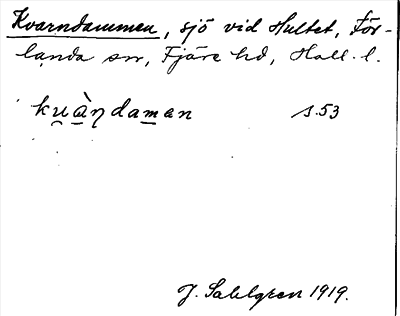 Kvarndammen, sjö vid Hultet, För-
landa sn, Fjäre hd, Hall. l.
kṷàn̥daman s.53
J. Sahlgren 1919.